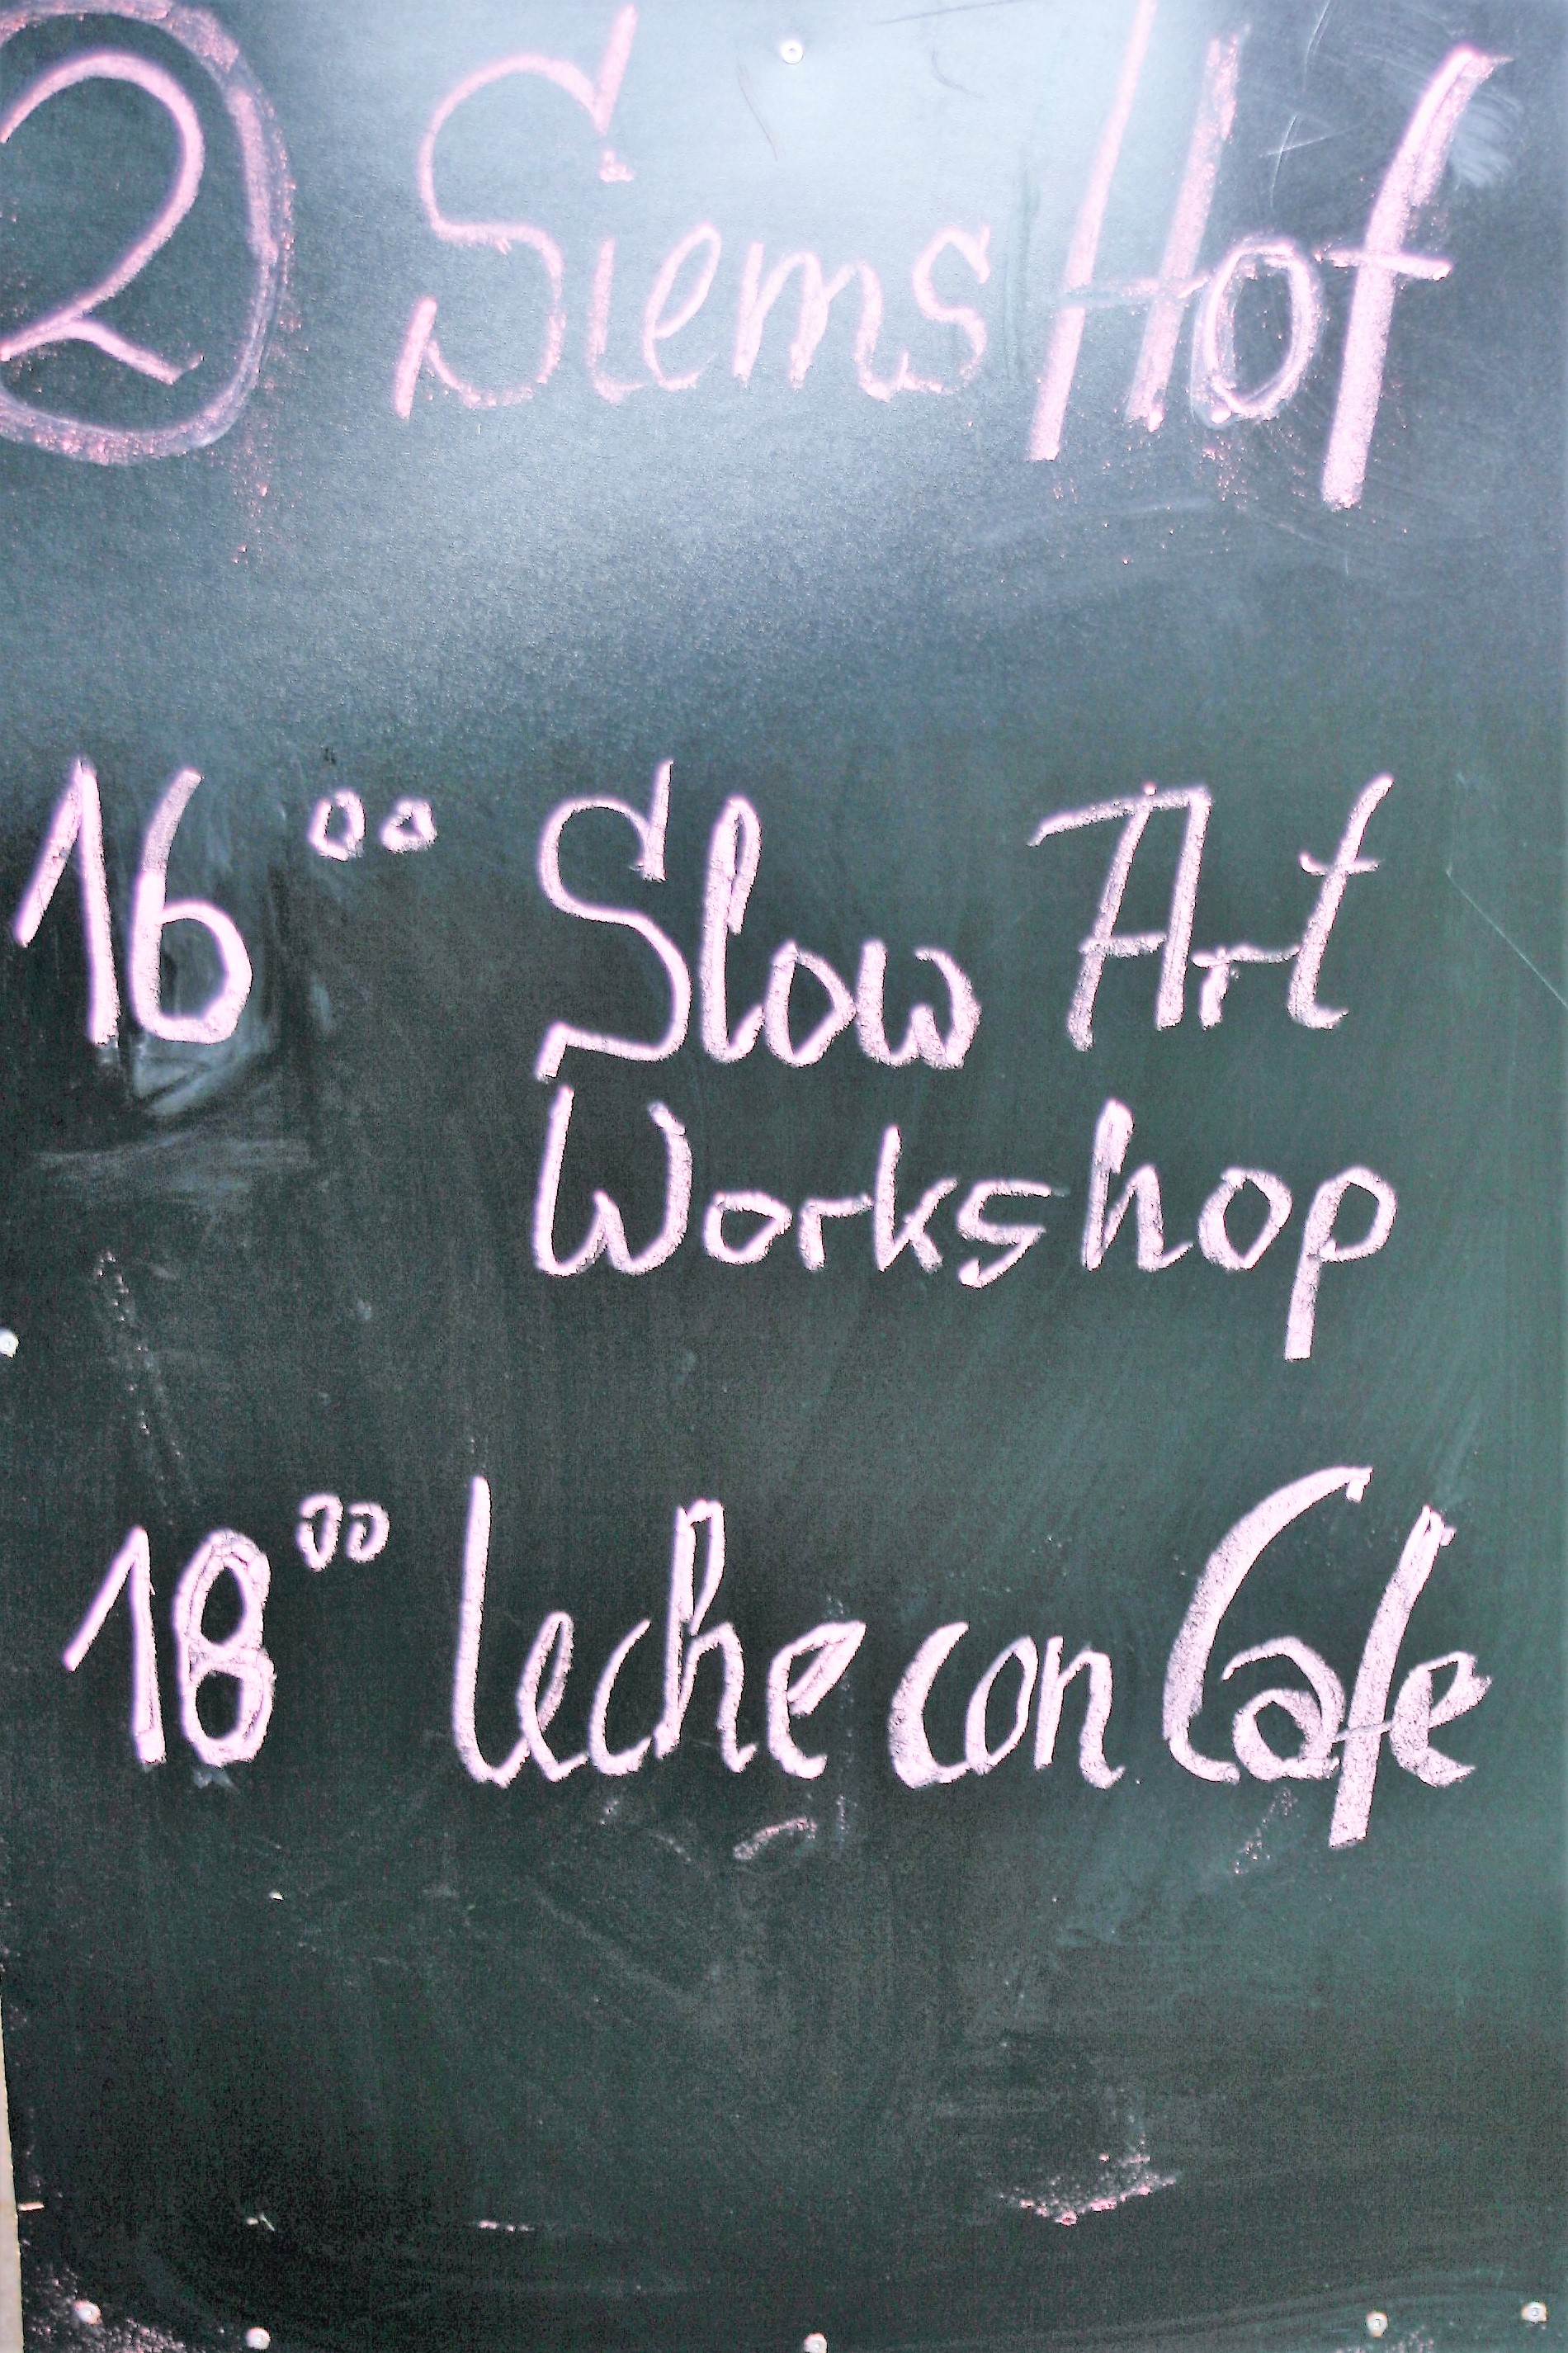 2 Siems Hof
16 00 Slow Art
Workshop
18 00 leche con Cafe